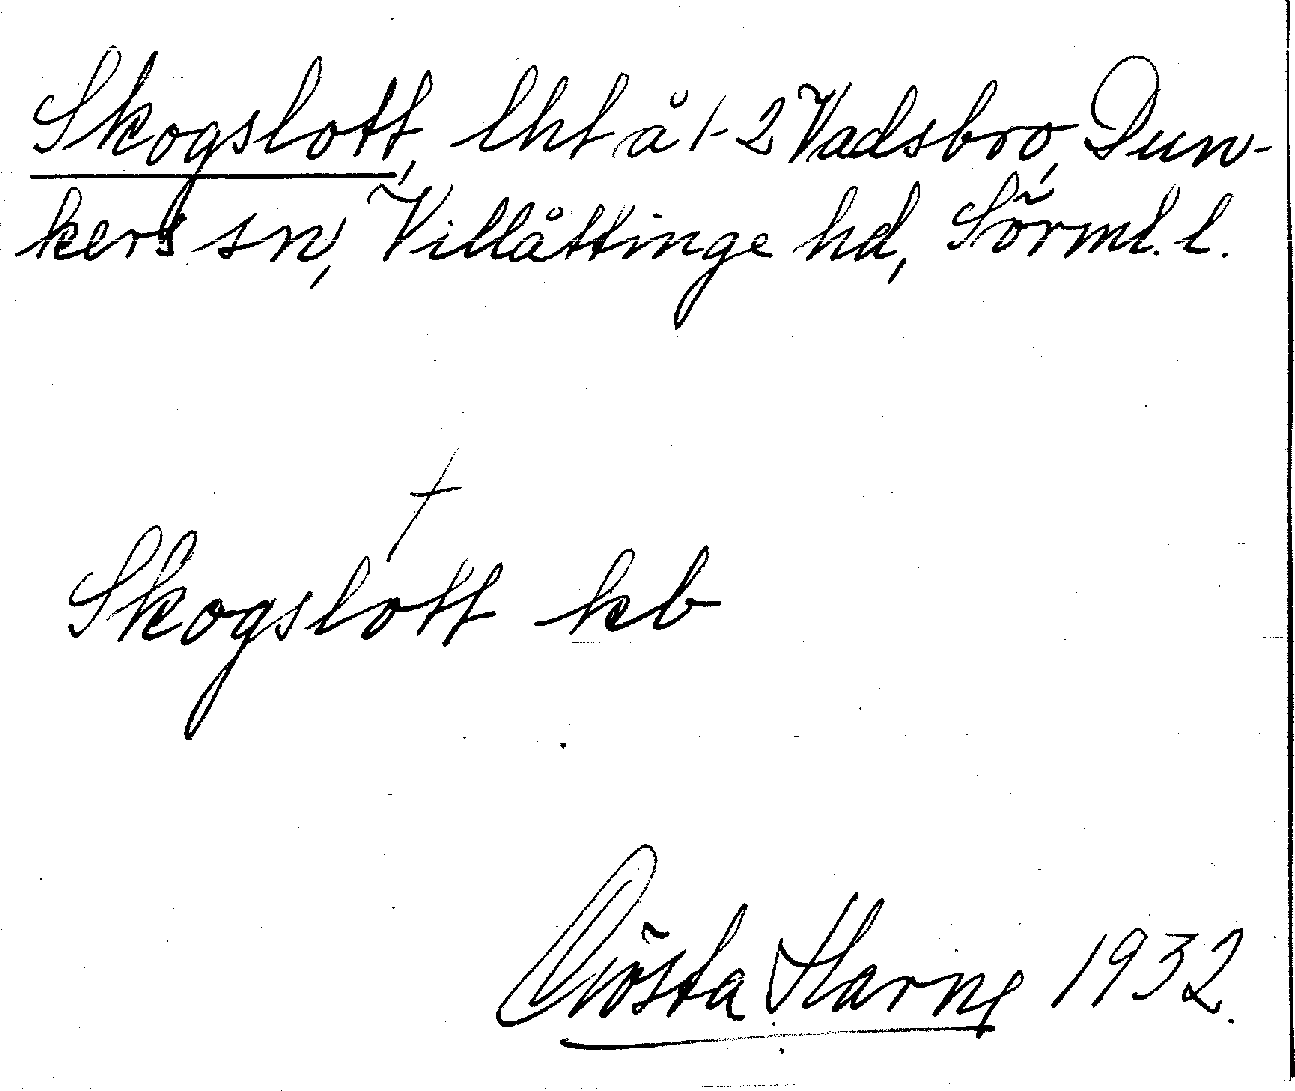 Skogslott, lht å 1-2 Vadsbro, Dun-
kers sn, Villåttinge hd, Sörml. l.
†
Skogslott kb
Gösta Harne 1932.